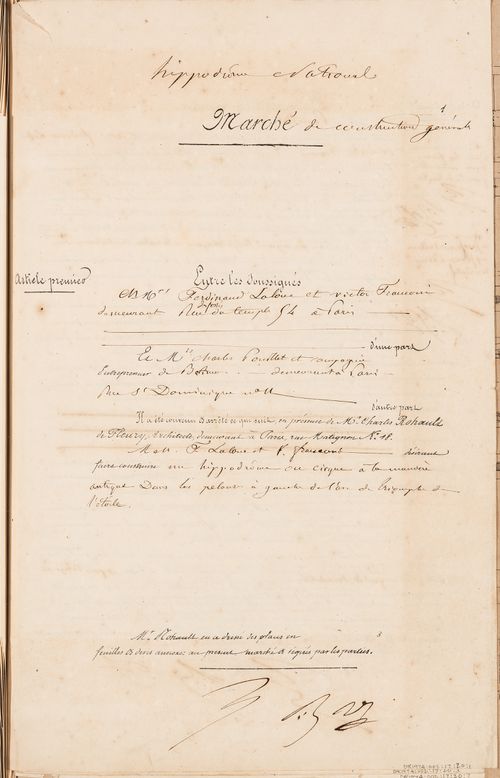 hippodrome National
1
Marché de construction générale
Article premier
Entre les soussignés
MMrs Ferdinand Laloue et victor Franconi
demeurant Rue du temple 54 à Paris
d'une part
Et Mr Charles Pouillet et compagnie
Entrepreneur de demeurant à Paris
Rue St Dominique no 11
d'autre part
Il a été convenu & arrêté ce qui suit, en présence de Mr. Charles Rohault
de Fleury, Architecte, demeurant à Paris, rue Matignon No. 18.
MM. F. Laloue et V. Franconi désirant
faire construire un hippodrome ou cirque à la manière
antique Dans les pelouses à gauche de l'arc de triomphe de
l'étoile.
Mr. Rohault en a dressé des plans en 3
feuilles & devis annexés au présent marché & signés par les parties.